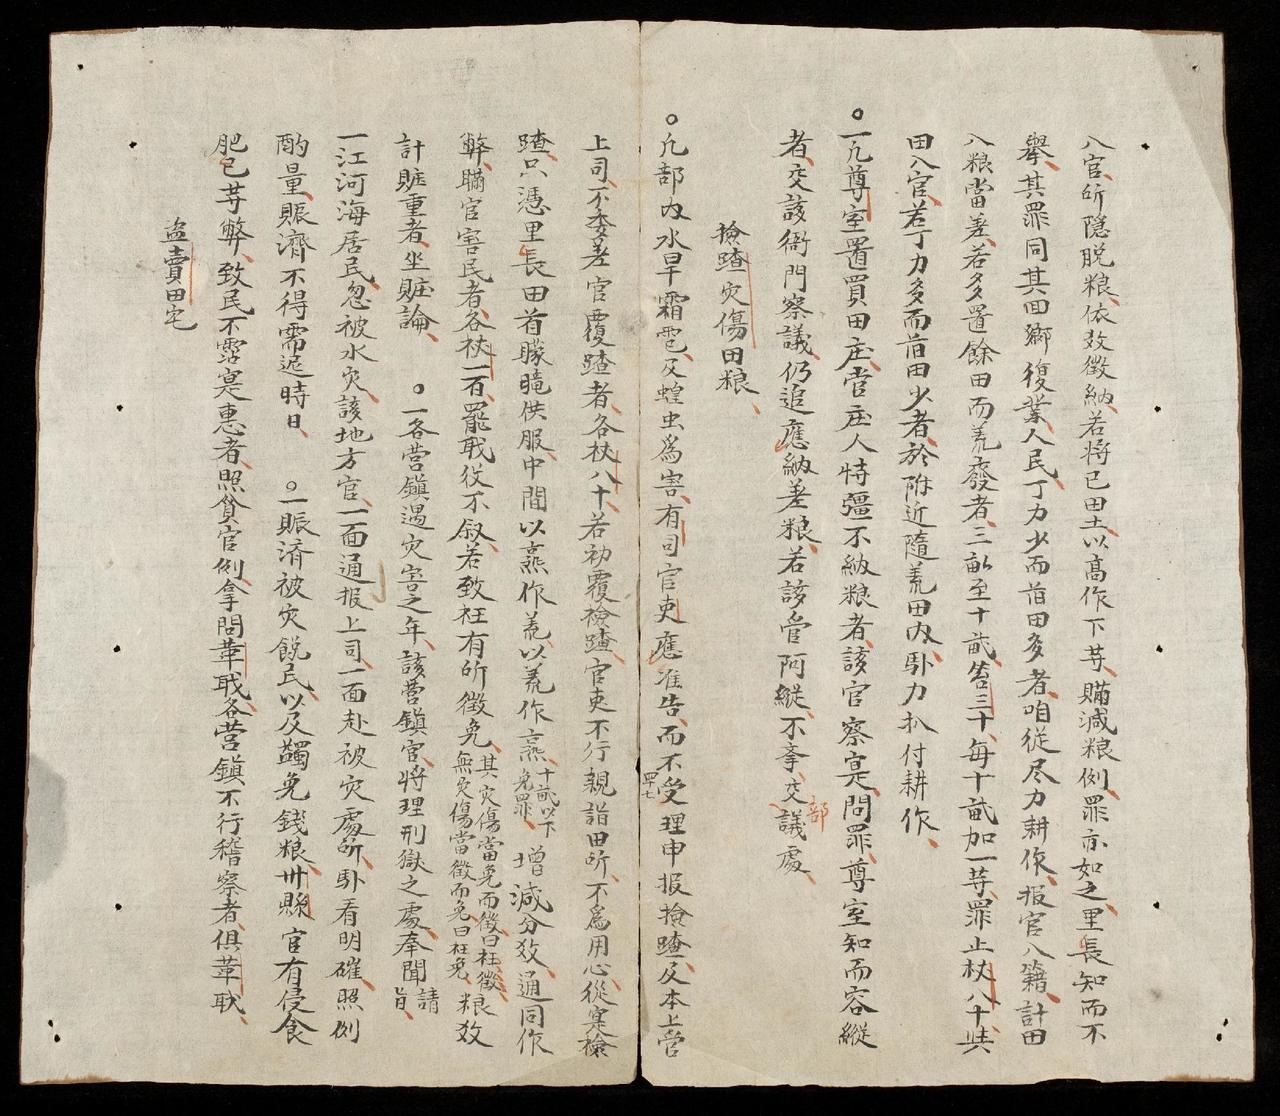 入官、所隱脱粮、依数徵納、若将已田土、以高作下等、瞞減粮例、罪亦如之、里長知而不
舉、其罪同、其回鄉復業、人民丁力少而旧田多者、咱從尽力耕作、报官入籍、計田
入粮當差、若多置餘田而荒廢者、三畝至十畝、笞三十、每十畝加一等、罪止杖八十、其
田入官、若丁力多而旧田少者、於附近隨荒田内、卧力扒付耕作、
一凡尊室置買田庄、営庄人恃彊不納粮者、該官察寔、問罪、尊室知而容縱
者、交該衙門察議、仍追應納差粮、若該管阿縱不叅、交部議處、
撿蹅灾傷田粮、
凡部内水旱霜雹、及蝗虫爲害、有司官吏應准告而不受理申报撿蹅、及本上营
四十七
上司、不委差官覆蹅者、各杖八十、若初覆撿蹅、官吏不行親詣田所、不爲用心、從寔撿
蹅、只憑里長田首朦朧供服、中間以熟作荒、以荒作熟、十畝以下免罪、增減分数、通同作
弊、瞞官害民者、各杖一百、罷職役不叙、若致枉有所徵免、其灾傷當免而徵曰枉徵、無灾傷當徵而免曰枉免、粮数
計賍重者、坐賍論、 一各营鎮遇灾害之年、該营鎮官、将理刑獄之處奉聞請旨、
一江河海居民忽被水灾、該地方官、一面通报上司、一面赴被灾處所、卧看明確、照例
酌量、賑濟不得需遲時日、 一賑済被灾饑民、以及蠲免錢粮、卅縣官有侵食
肥己等弊、致民不霑寔惠者、照貪官例拿問革職、各营鎮不行稽察者、俱革职、
盗賣田宅